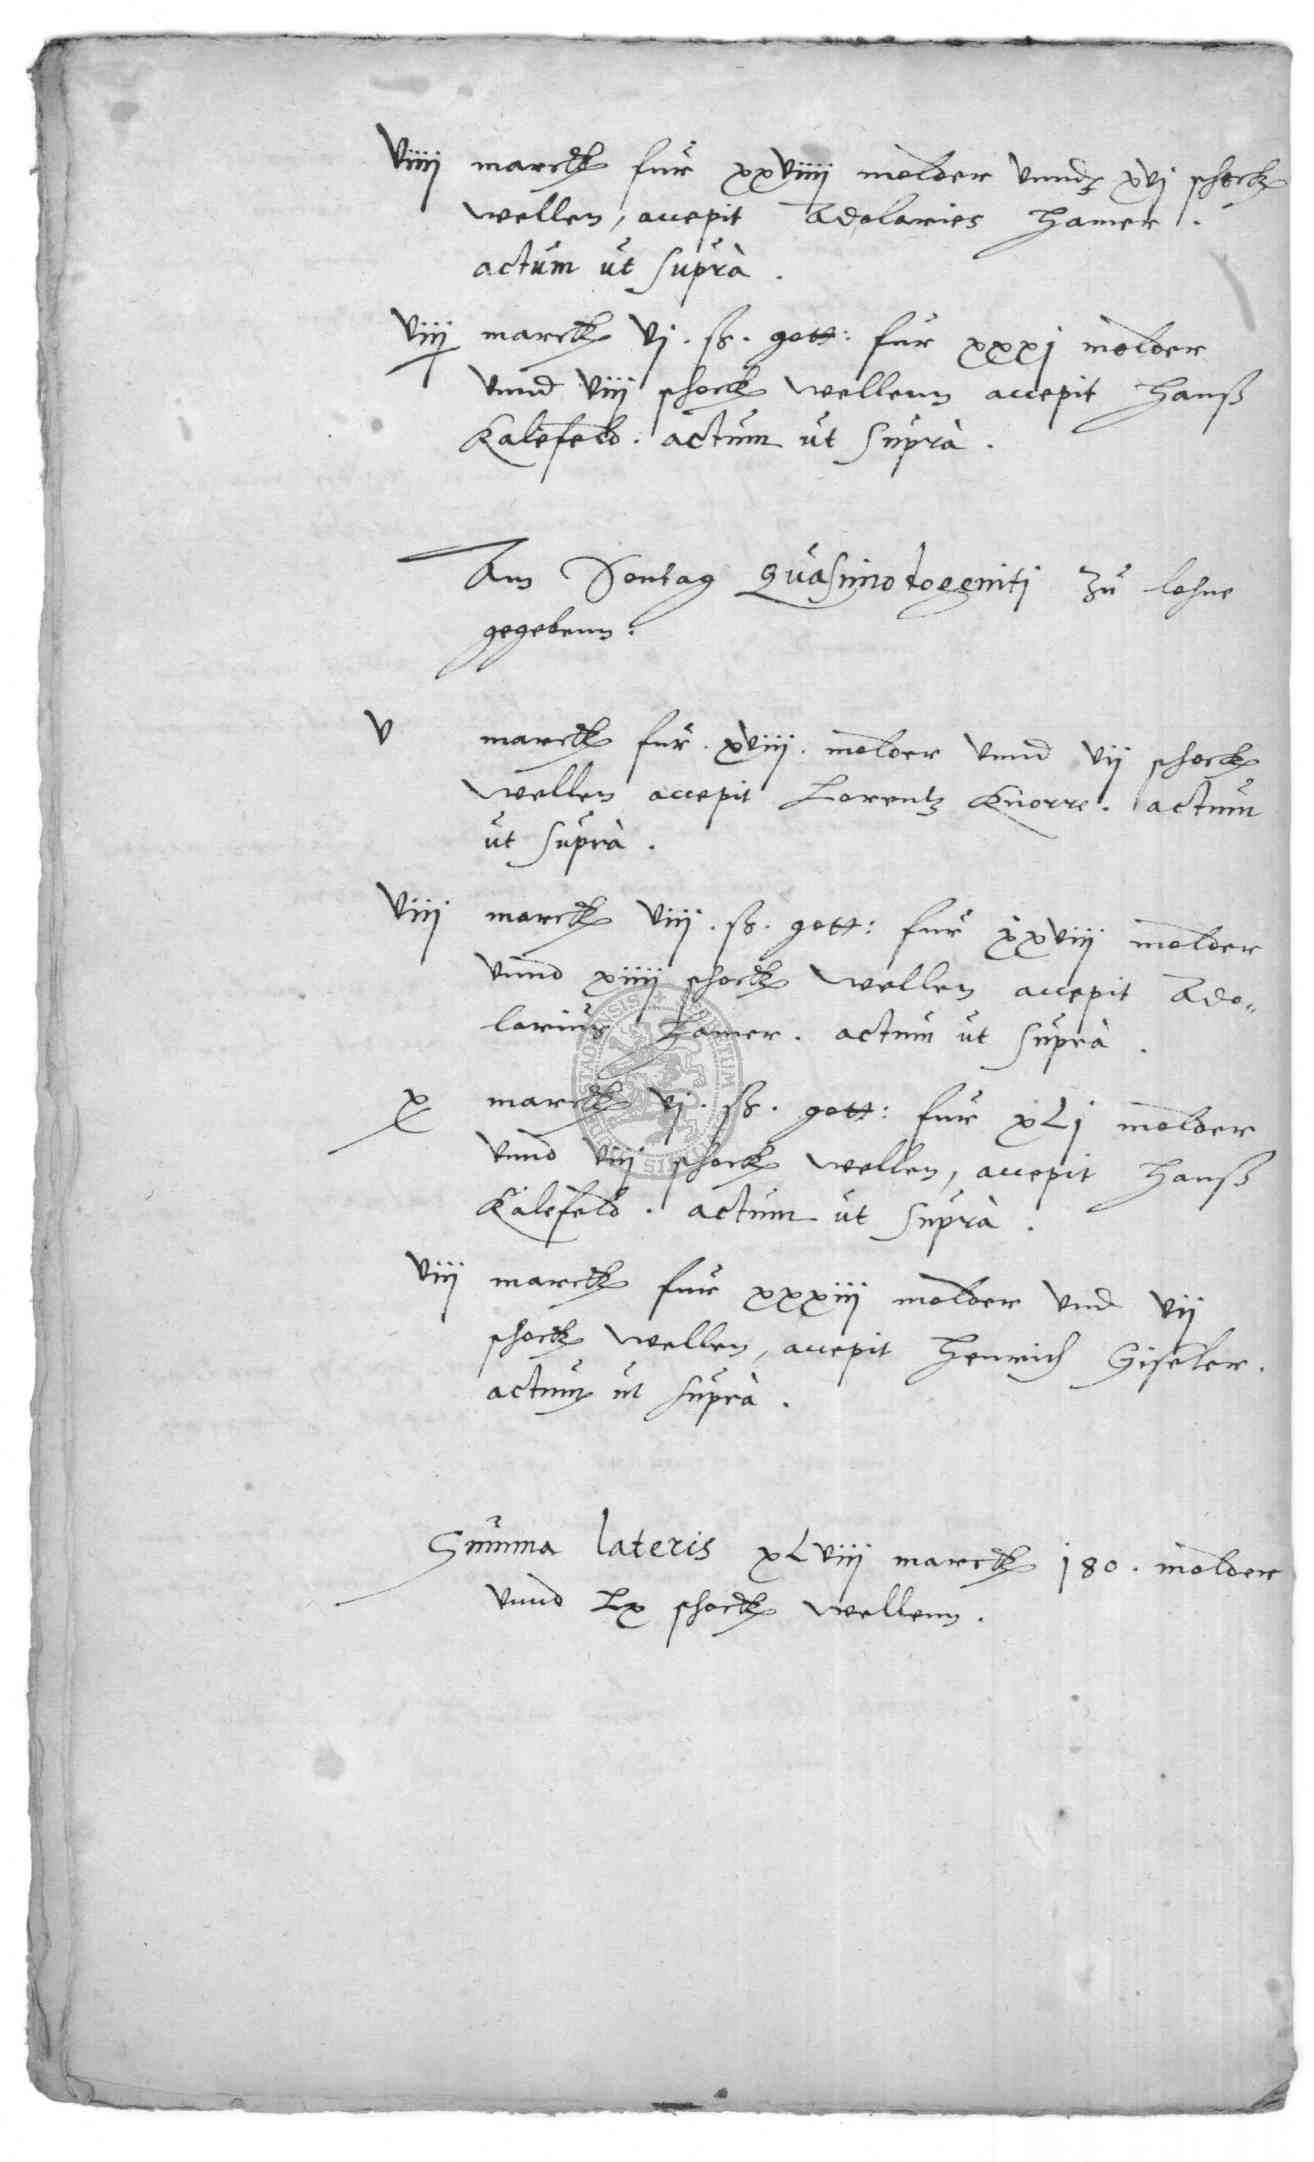 viiij marckh fur xxviiij molder vnnd xvj schock
wellen, accepit Adolaries Hamer.
actum ut suprà.
viij marckh vj. ß. gott: fur xxxj molder
vnnd viij schock wellenn accepit Hanß
Kalefeld. actum ut suprà.
Am Sontag Quasimodogeniti zu lohne
gegebenn:
v marckh fur. xviij. molder vnnd vij schock
wellen accepit Lorentz Knorre. actum
ut suprà.
viij marckh viij. ß. gott: fur xxviij molder
vnnd xiiij schock wellen accepit Ado-
larius Hamer. actum ut suprà.
x marckh vj. ß. gott: fur xLj molder
vnnd viij schock wellen, accepit Hanß
Kalefeld. actum ut suprà.
viij marckh fur xxxiij molder vnd vij
schock wellen, accepit Henrich Giseler.
actum ut suprà.
Summa lateris xLviij marckh 180. molder
vnnd Lx schock wellenn.